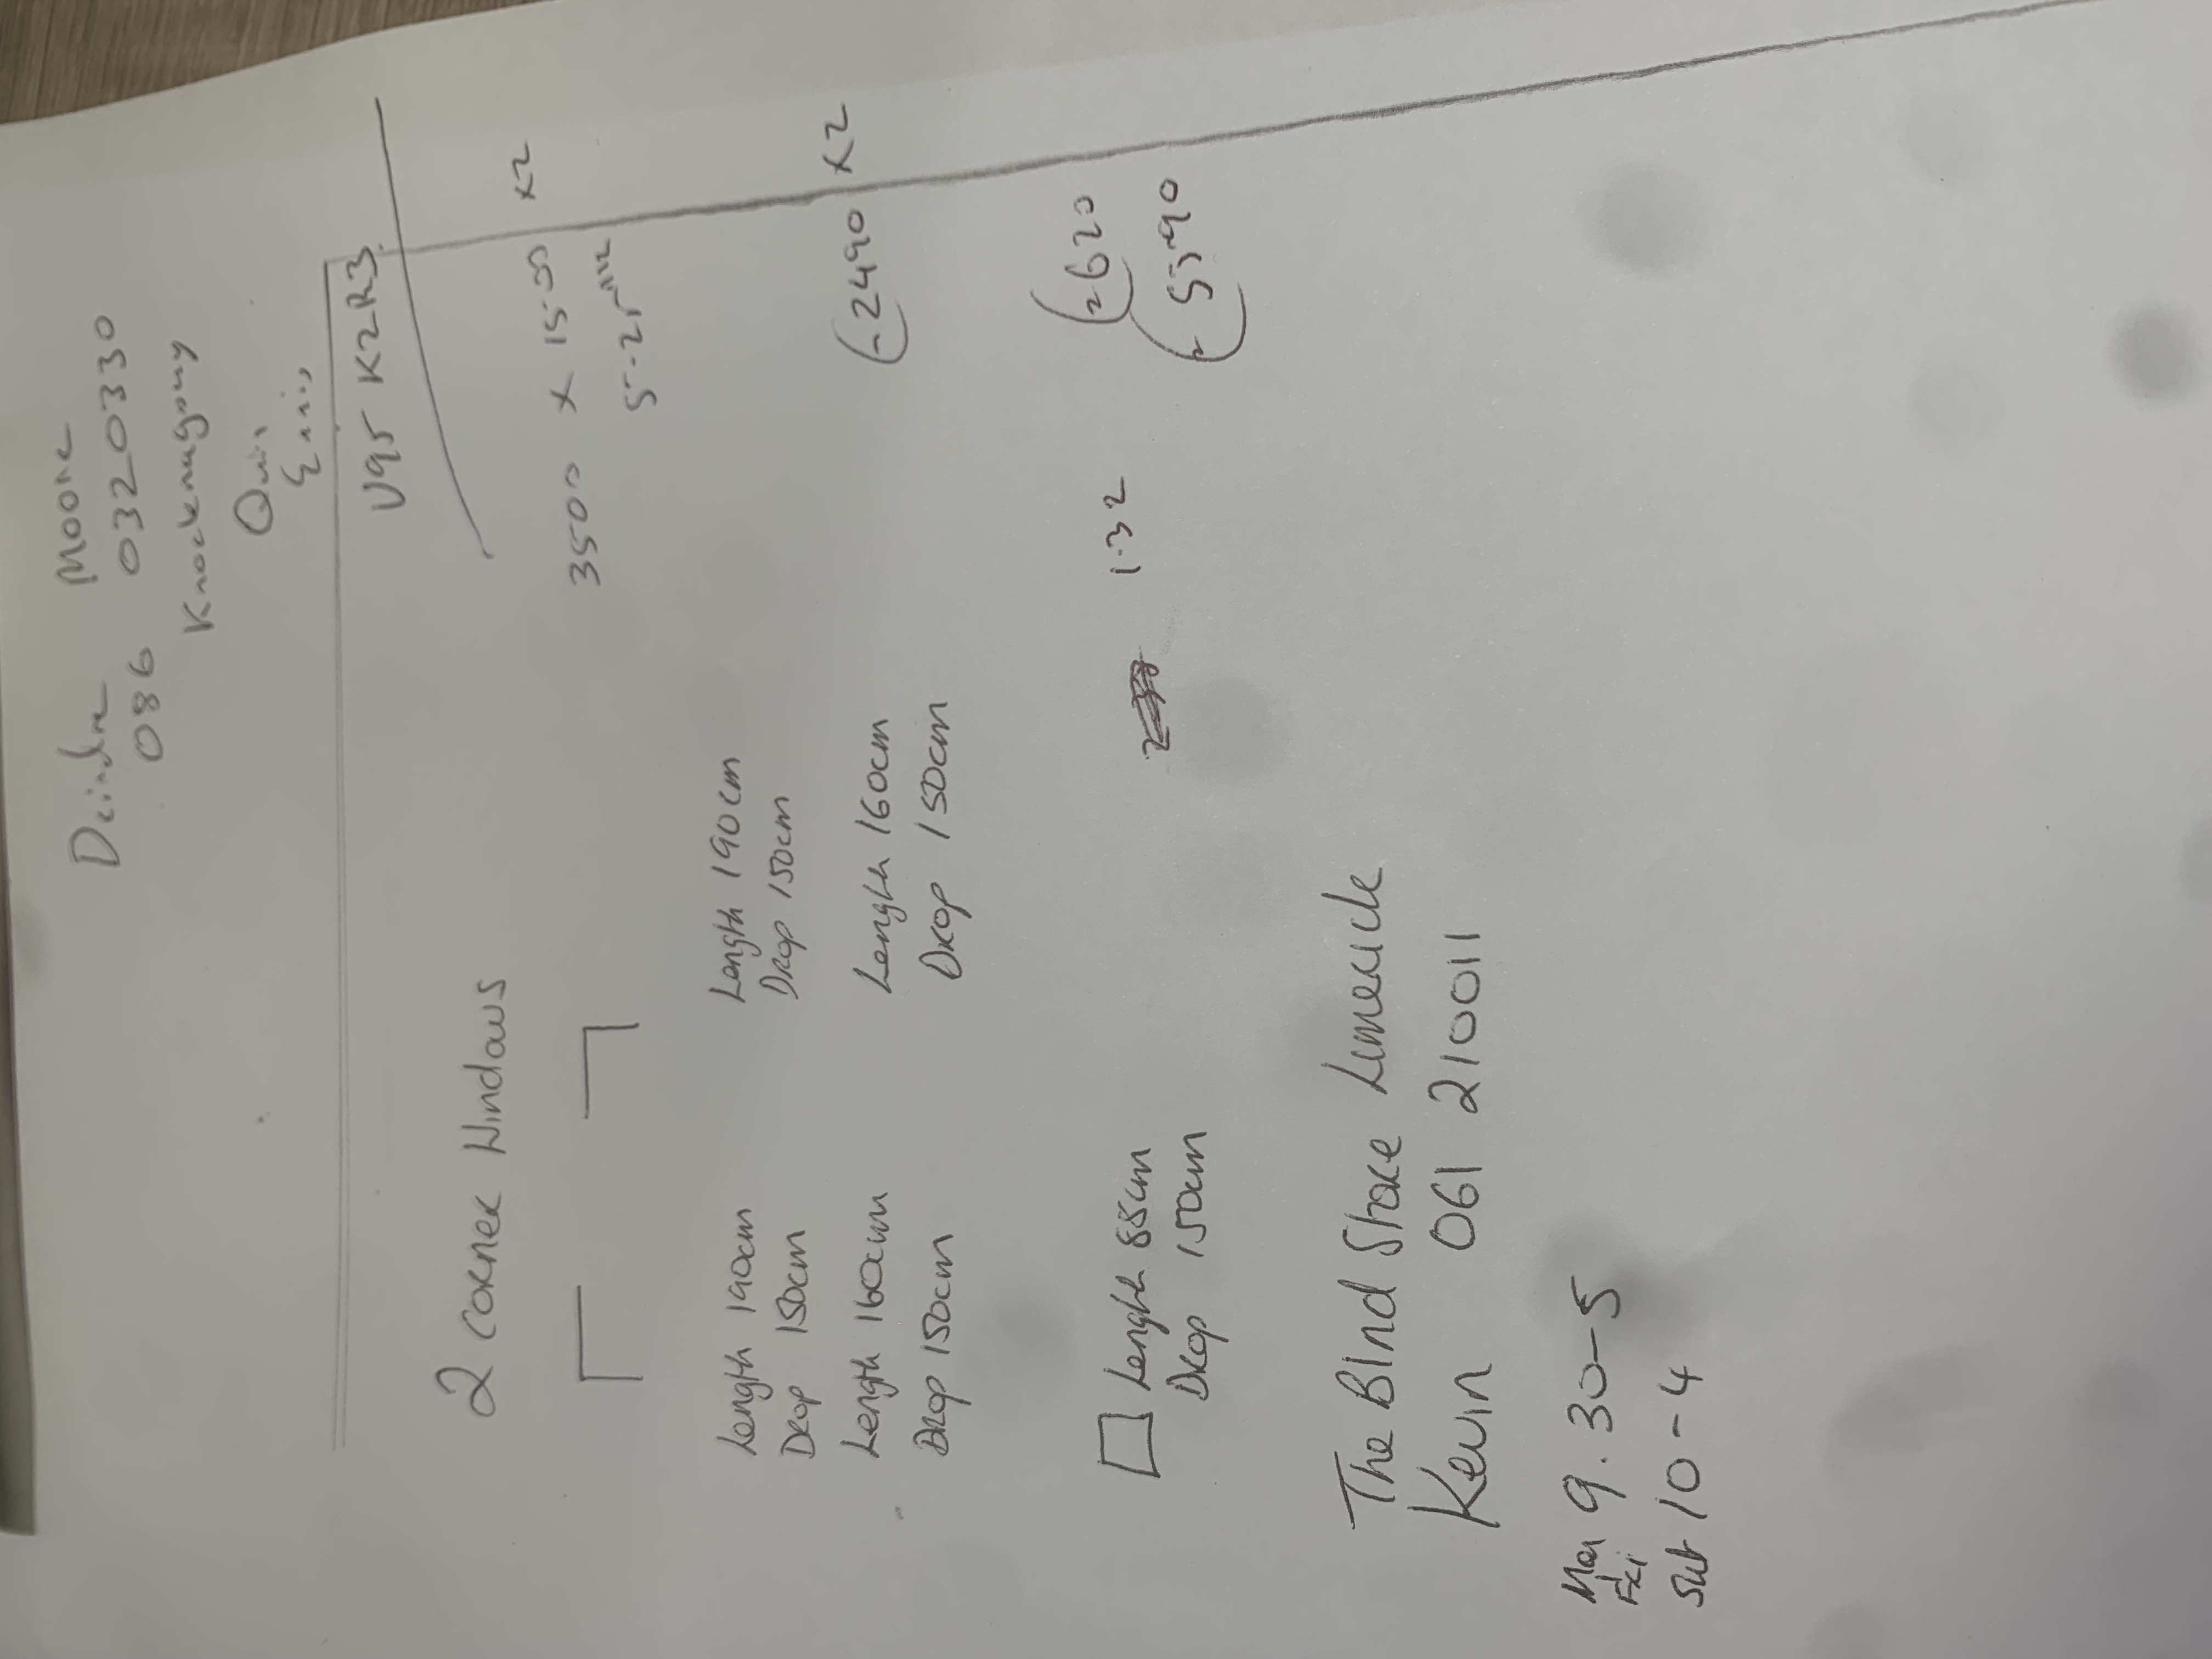 Deirdre Moore
086 0320330
Knockmagorry
Quin
Ennis
V95 K2R3
2 CORNER WINDOWS
3500 X 1500 X2
Length 190cm
Drop 150cm
Length 190cm
Drop 150cm
Length 160cm
Drop 150cm
Length 160cm
Drop 150cm
2490 X2
Length 88cm
Drop 150cm
1.32
2620
5590
The Blind Store Limerick
Kevin 061 210011
Mon Fri 9.30-5
Sat 10-4